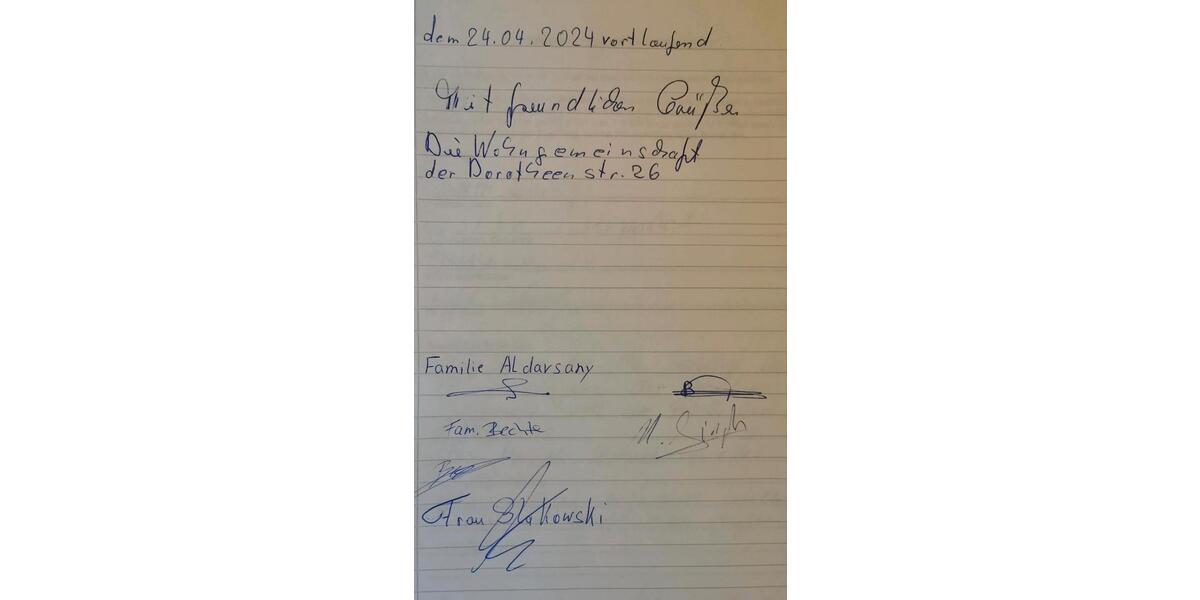 dem 24.04.2024 vortlaufend
Mit freundlichen Grüßen
Die Wohngemeinschaft
der Dorotheenstr. 26
Familie Aldarsany
B
Fam. Bechte
M. Singh
Frau